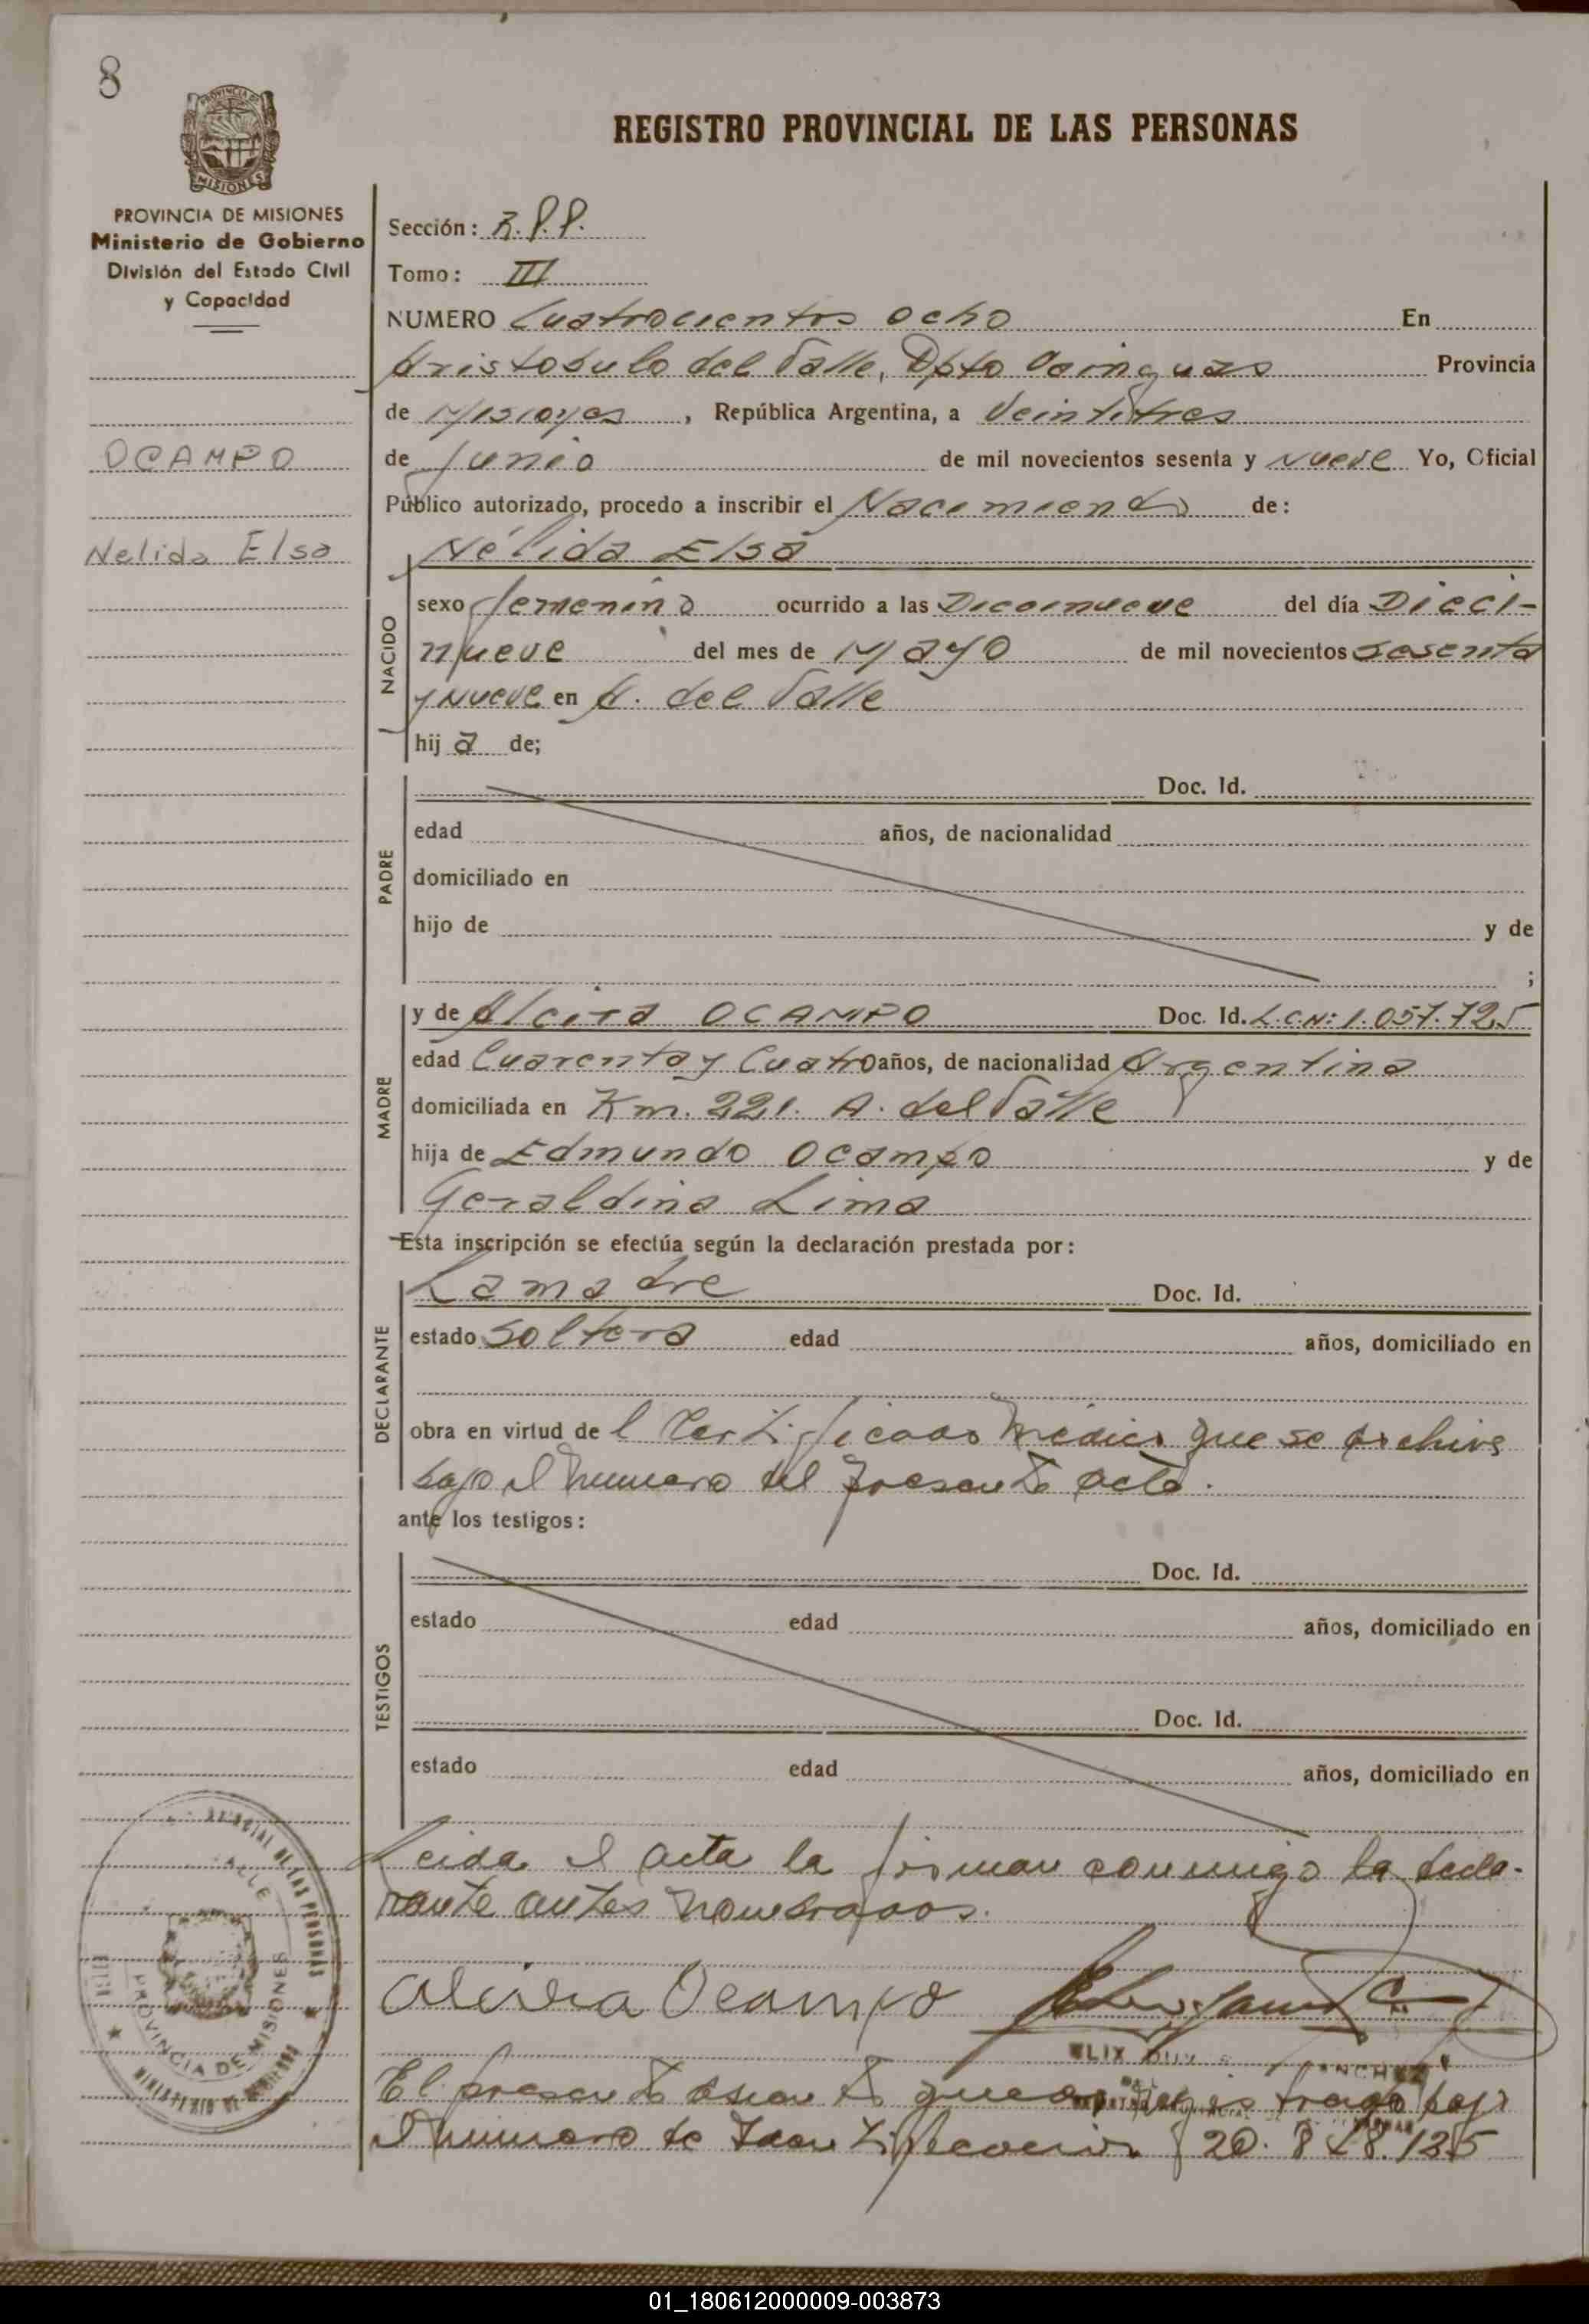 8
PROVINCIA DE MISIONES
Ministerio de Gobierno
División del Estado Civil
y Capacidad
OCAMPO
Nelida Elsa
REGISTRO PROVINCIAL DE LAS PERSONAS
Sección: R.P.P.
Tomo: III
NUMERO Cuatrocientos ocho En
Aristobulo del Valle, Dpto Cainguas Provincia
de Misiones, República Argentina, a Veintitres
de Junio de mil novecientos sesenta y nueve Yo, Oficial
Público autorizado, procedo a inscribir el Nacimiento de:
NACIDO
Nélida Elsa
sexo femenino ocurrido a las Diecinueve del día Dieci-
nueve del mes de Mayo de mil novecientos sesenta
y nueve en A. del Valle
hij a de;
PADRE
Doc. Id.
edad años, de nacionalidad
domiciliado en
hijo de y de
;
MADRE
y de Alcira OCAMPO Doc. Id. L.C.N: 1.057.725
edad Cuarenta y Cuatro años, de nacionalidad Argentina
domiciliada en Km. 221. A. del Valle
hija de Edmundo Ocampo y de
Geraldina Lima
Esta inscripción se efectúa según la declaración prestada por:
DECLARANTE
La madre Doc. Id.
estado soltera edad años, domiciliado en
obra en virtud de l Certificado médico que se archiva
bajo el numero del presente acta.
ante los testigos:
TESTIGOS
Doc. Id.
estado edad años, domiciliado en
Doc. Id.
estado edad años, domiciliado en
Leida el acta la firman conmigo la decla-
rante antes nombrados.
Alcira Ocampo
SANCHEZ
El presente asiento queda registrado bajo
el numero de Identificacion 20.8
PROVINCIA DE MISIONES
01_180612000009-003873